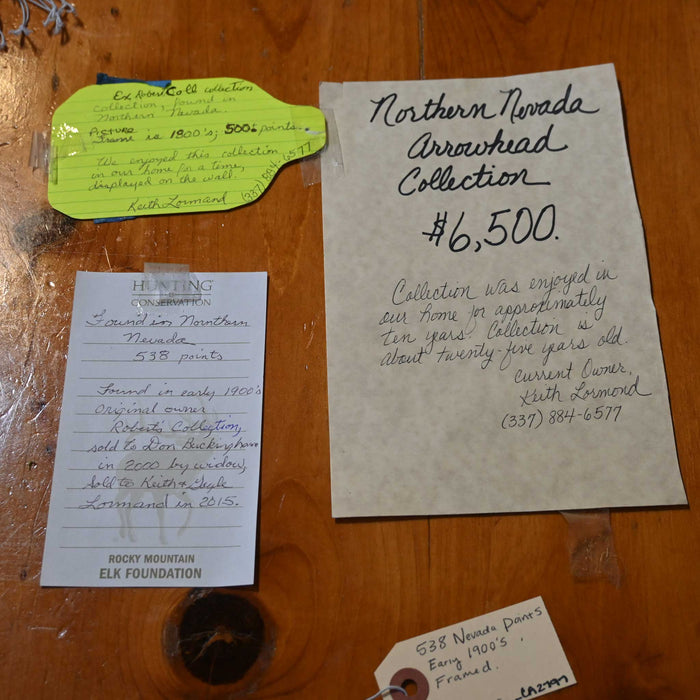 Ex, Robert Coll collection
collection, found in
Northern Nevada.
Picture
frame is 1800's; 500± points.
We enjoyed this collection
in our home for a time,
displayed on the wall.
Keith Lormand (337) 884-6577
Northern Nevada
Arrowhead
Collection
$6,500.
Collection was enjoyed in
our home for approximately
ten years. Collection is
about twenty-five years old.
Current Owner,
Keith Lormond
(337) 884-6577
HUNTING
CONSERVATION
Found in Nornthern
Nevada
538 points
Found in early 1900's
Original owner
Roberts Collection,
sold to Don Buckingham
in 2000 by widow,
Sold to Keith & Gayle
Lormand in 2015.
ROCKY MOUNTAIN
ELK FOUNDATION
538 Nevada points
Early 1900's.
Framed.
CA2797